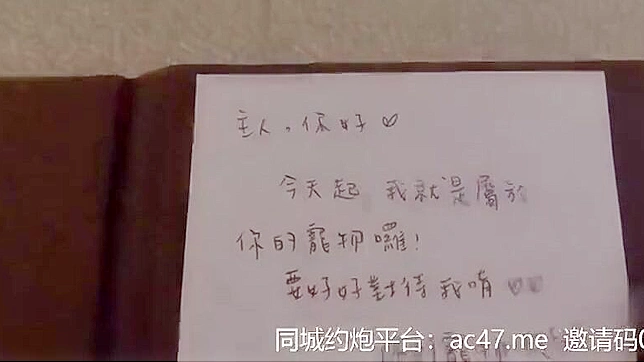 主人，你好♡
今天起 我就是屬於
你的寵物囉！
要好好對待我唷♡♡
同城约炮平台：ac47.me 邀请码